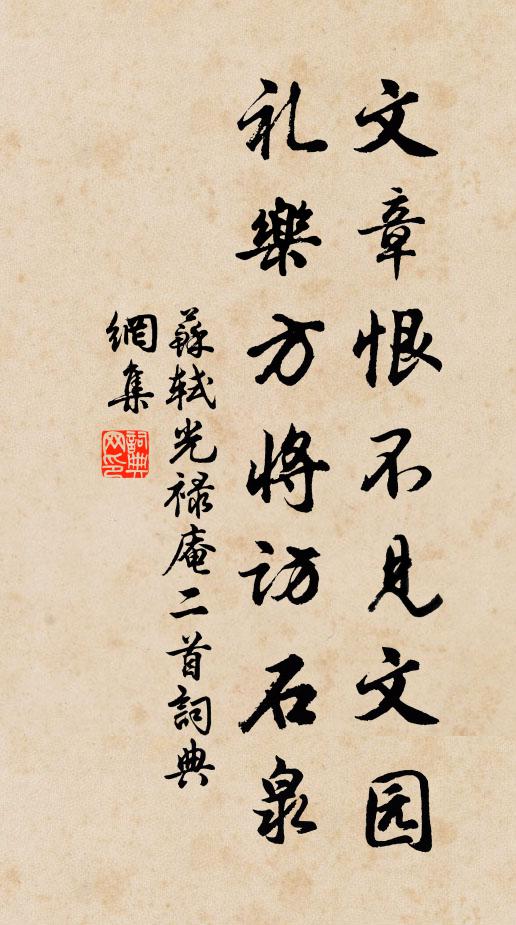 文章恨不見文园
礼樂方将訪石泉
蘇軾光禄庵二首詞典
網集
詞典網印